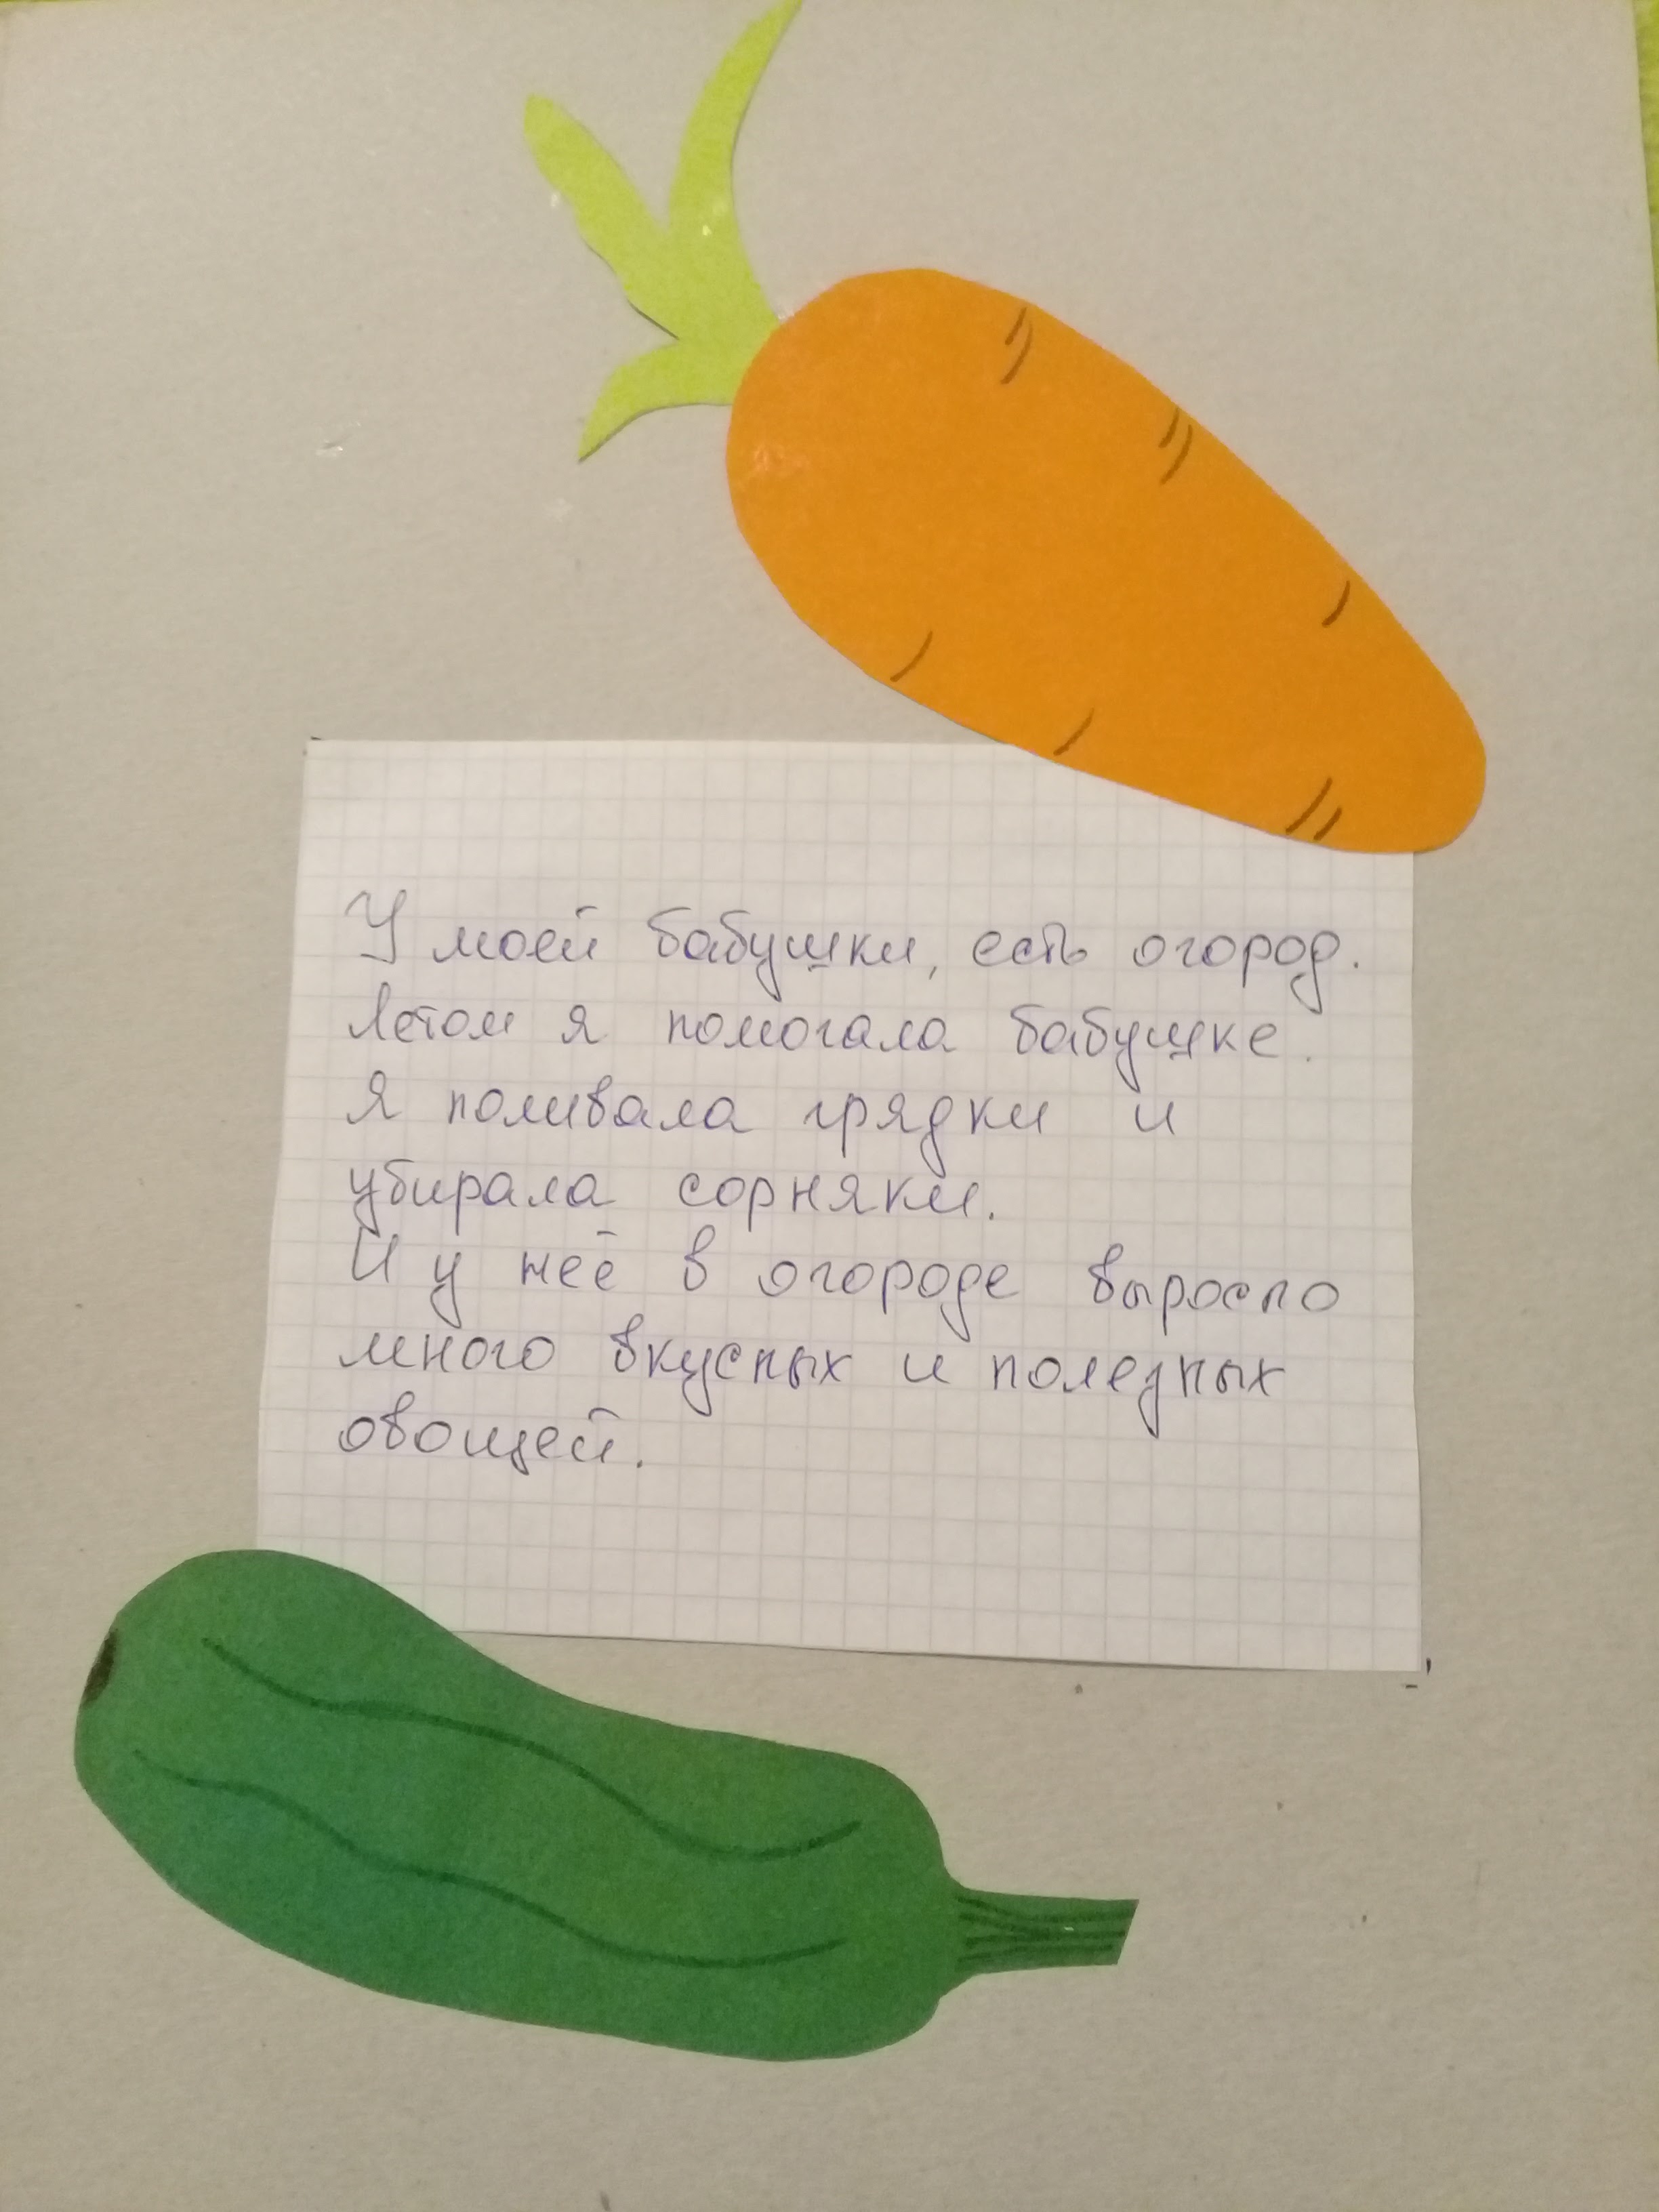 У моей бабушки, есть огород.
Летом я помогала бабушке.
Я поливала грядки и
убирала сорняки.
И у неё в огороде выросло
много вкусных и полезных
овощей.